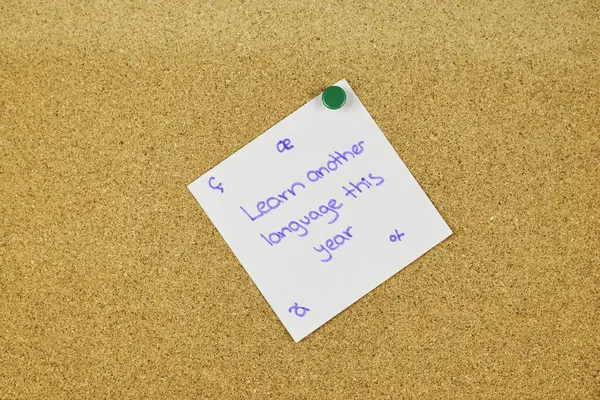 æ
ç
Learn another
language this
year